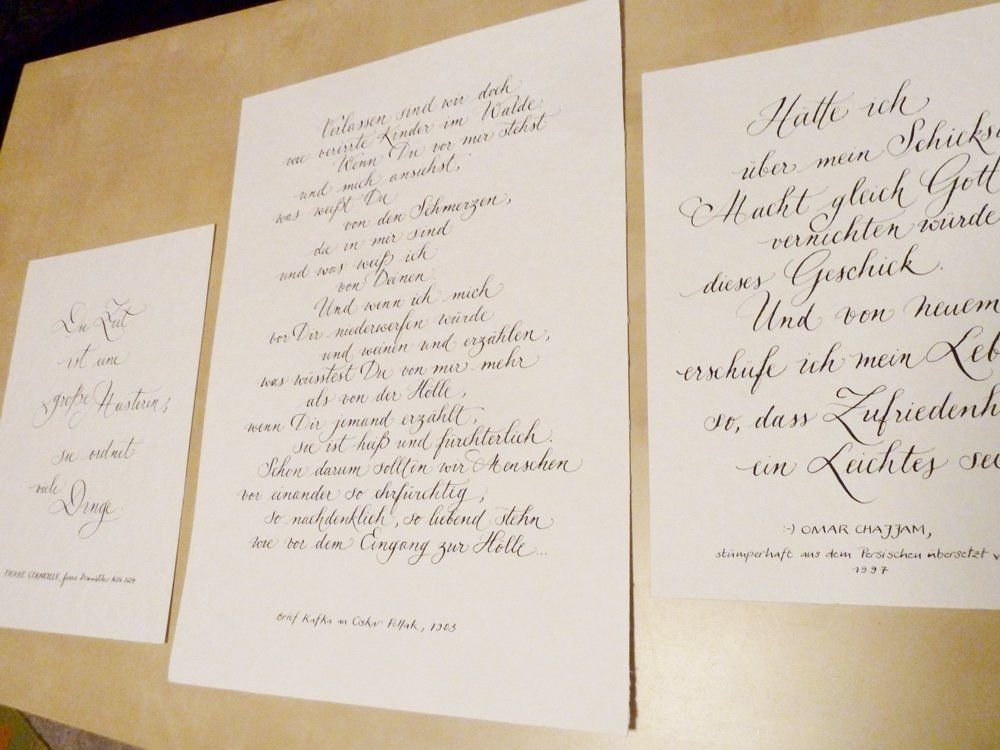 Die Zeit
ist eine
große Meisterin;
sie ordnet
viele
Dinge.
PIERRE CORNEILLE, franz. Dramatiker 1606-1684
Verlassen sind wir doch
wie verirrte Kinder im Walde.
Wenn Du vor mir stehst
und mich ansiehst,
was weißt Du
von den Schmerzen,
die in mir sind
und was weiß ich
von Deinen.
Und wenn ich mich
vor Dir niederwerfen würde
und weinen und erzählen,
was wüsstest Du von mir mehr
als von der Hölle,
wenn Dir jemand erzählt,
sie ist heiß und fürchterlich.
Schon darum sollten wir Menschen
vor einander so ehrfürchtig,
so nachdenklich, so liebend stehn
wie vor dem Eingang zur Hölle...
Brief Kafka an Oskar Pollak, 1903
Hätte ich
über mein Schicksa
Macht gleich Gott
vernichten würde
dieses Geschick.
Und von neuem
erschüfe ich mein Leb
so, dass Zufriedenh
ein Leichtes sei
:-) OMAR CHAJJAM,
stümperhaft aus dem Persischen übersetzt v
1997